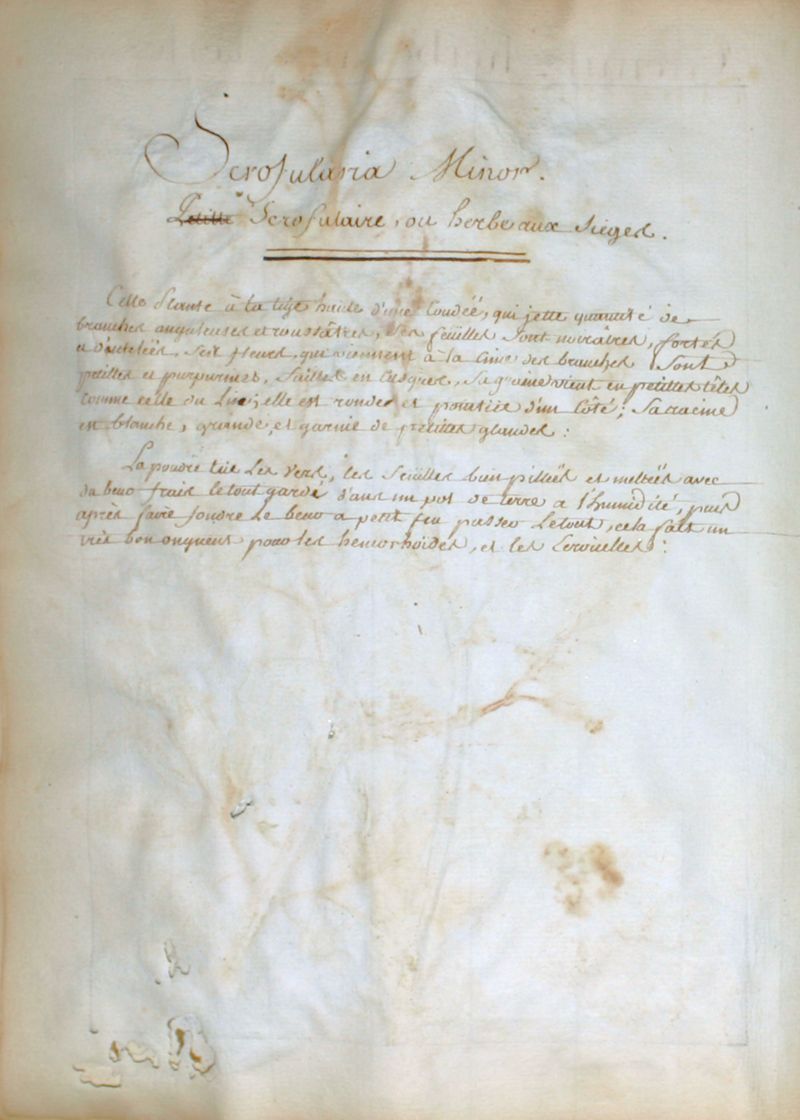 Scrofularia Minor.
Petitte Scrofulaire, ou herbe aux sieges.
Cette Plante à la tige haute d'une Coudéé, qui jette quantité de
branches anguleuses et roussâtres, Ses feüilles sont noirâtres, fortes
et d'autelées, Ses fleurs, qui viennent à la Cime des branches Sont
petittes et purpurines, faittes en Casques, Sa graine vient en petittes têtes
comme celle du Lin; elle est ronde et pointüe d'un Côté; Sa racine
est blanche, grande, et garnie de petittes glandes:
La poudre tüe Les Vers, les feüilles bien pilléës et metteës avec
du beuro frais le tout gardé d'ans un pot de terre a l'humidité, puis
après faire fondre Le beuro a petit feu passer Le tout, cela fait un
très bon onguent pour les hemorhoïdes, et les Ecroüelles: